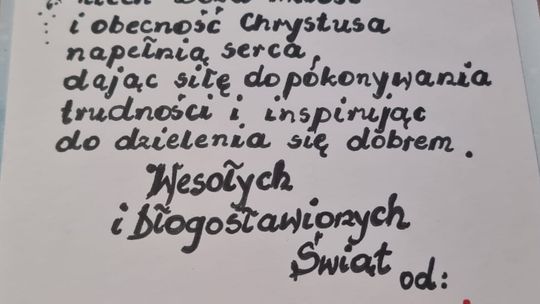 niech Boża miłość
i obecność Chrystusa
napełnią serca,
dając siłę do pokonywania
trudności i inspirując
do dzielenia się dobrem.
Wesołych
i błogosławionych
Świąt
od: